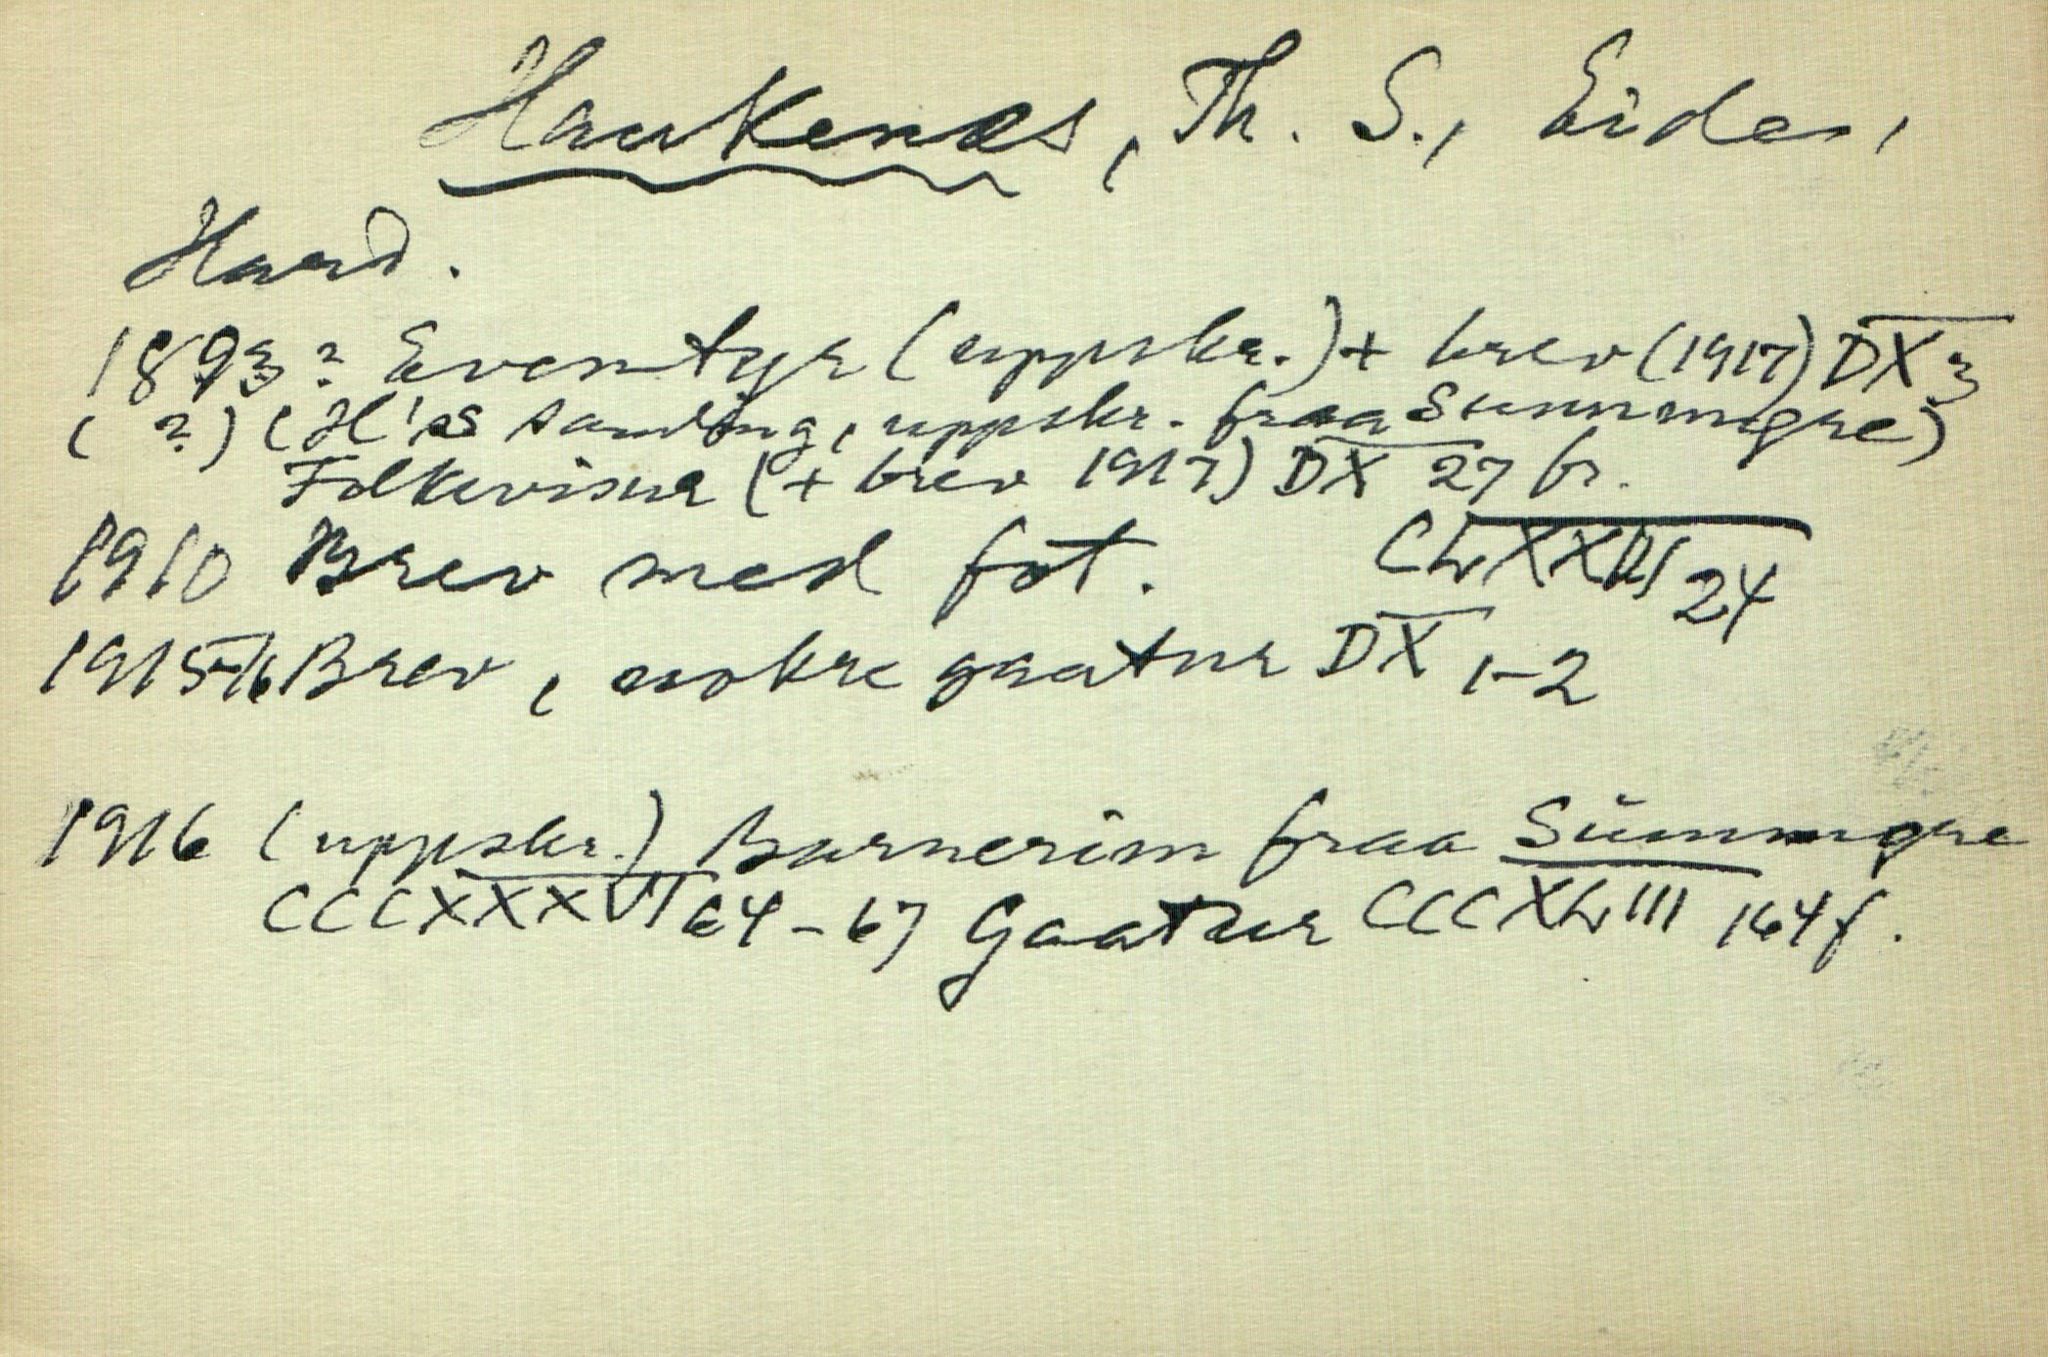 Haukenæs, Th. S., Eide,
Hard.
1893? Eventyr (uppskr.) + brev (1917) DX 3
(?) (H's samling, uppskr. fraa Sunnmøre)
Folkevisur (+ brev 1917) DX 27 fr.
1910 Brev med fot. 24
1915-16 Brev, nokre gaatur DX 1-2
1916 (uppskr.) Barnerim fraa Sunnmøre
CCCXXXVI 64-67 Gaatur CCCXLIII 164f.